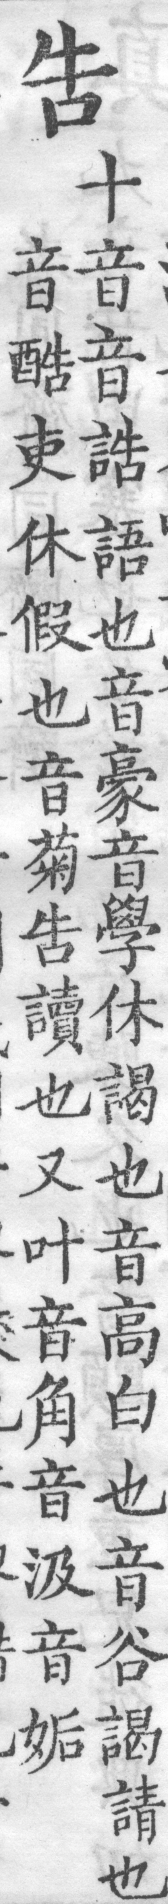 告
十音音誥語也音豪音學休謁也音高白也音谷謁請也
音酷吏休假也音菊告讀也又叶音角音汲音姤